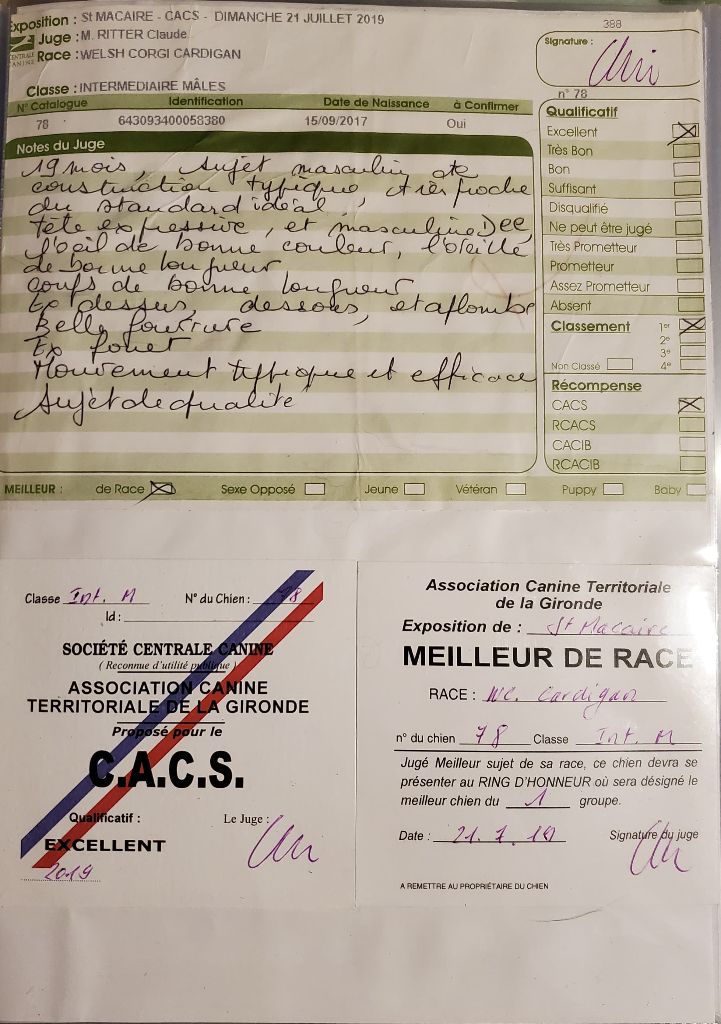 Exposition : St MACAIRE - CACS - DIMANCHE 21 JUILLET 2019
388
CENTRALE CANINE
Juge : M. RITTER Claude
Race : WELSH CORGI CARDIGAN
Signature :
Classe : INTERMEDIAIRE MÂLES
n° 78
N° Catalogue Identification Date de Naissance à Confirmer
78 643093400058380 15/09/2017 Oui
Notes du Juge
19 mois, Sujet masculin de
construction typique, et très proche
du standard idéal,
tête expressive, et masculine
l'oeil de bonne couleur, l'oreille
de bonne longueur
coups de bonne longueur
Ex dessus, dessous, et aplombs
Belle fourrure
Ex fouet
Mouvement typique et efficace
Sujet de qualité
Qualificatif
Excellent
Très Bon
Bon
Suffisant
Disqualifié
Ne peut être jugé
Très Prometteur
Prometteur
Assez Prometteur
Absent
Classement 1er
2e
3e
Non Classé 4e
Récompense
CACS
RCACS
CACIB
RCACIB
MEILLEUR : de Race Sexe Opposé Jeune Vétéran Puppy Baby
Classe Int. M N° du Chien : 78
Id :
SOCIÉTÉ CENTRALE CANINE
( Reconnue d'utilité publique )
ASSOCIATION CANINE
TERRITORIALE DE LA GIRONDE
Proposé pour le
C.A.C.S.
Qualificatif : Le Juge :
EXCELLENT
2019
Association Canine Territoriale
de la Gironde
Exposition de : St Macaire
MEILLEUR DE RACE
RACE : WC. Cardigan
n° du chien 78 Classe Int. M
Jugé Meilleur sujet de sa race, ce chien devra se
présenter au RING D'HONNEUR où sera désigné le
meilleur chien du 1 groupe.
Date : 21.7.19 Signature du juge
A REMETTRE AU PROPRIÉTAIRE DU CHIEN